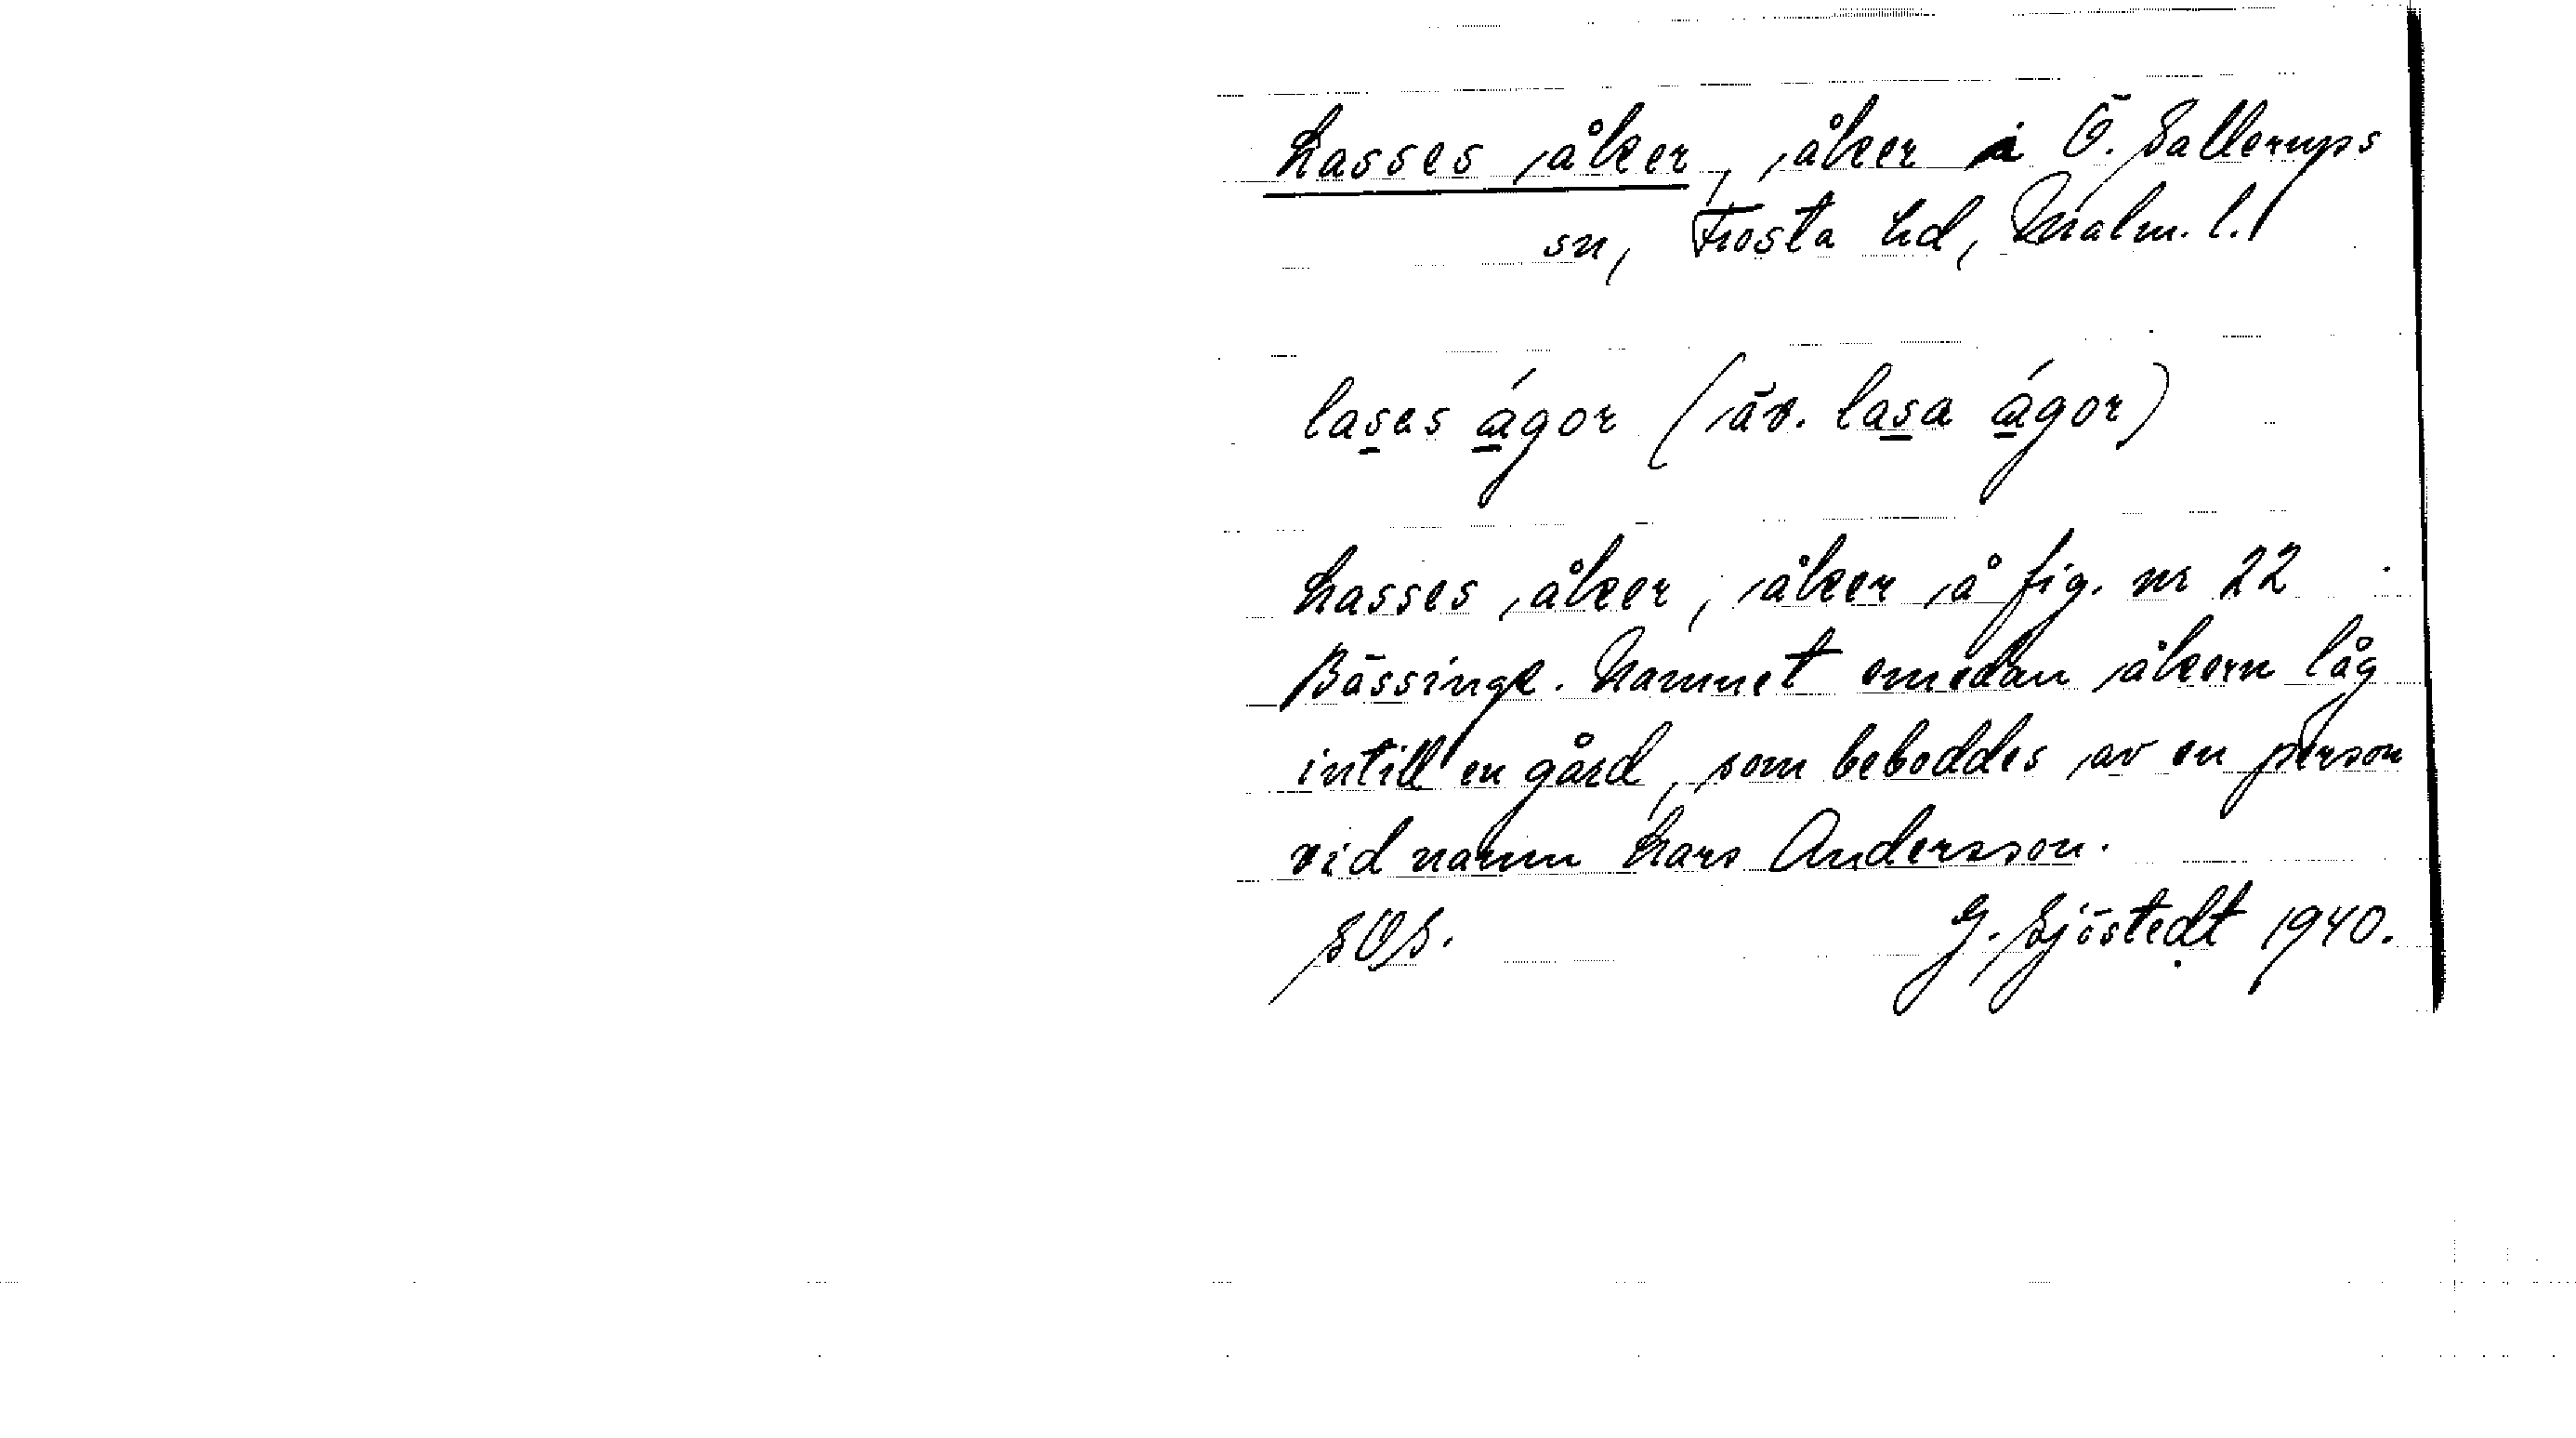 Lasses åker, åker i Ö. Sallerups
sn, Frosta hd, Malm. l.
lases ágor (äv. lasa ágor)
Lasses åker, åker å fig. nr 22
Bässinge. Namnet emedan åkern låg
intill en gård, som beboddes av en person
vid namn Lars Andersson.
SOS. G. Sjöstedt 1940.